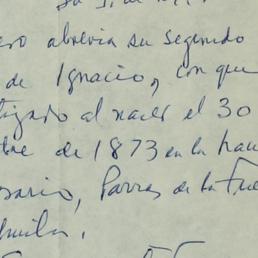 ero abrevia su segundo
de Ignacio, con que
tizado al nacer el 30
bre de 1873 en la hac
sario, Parras de la Fue
huila.